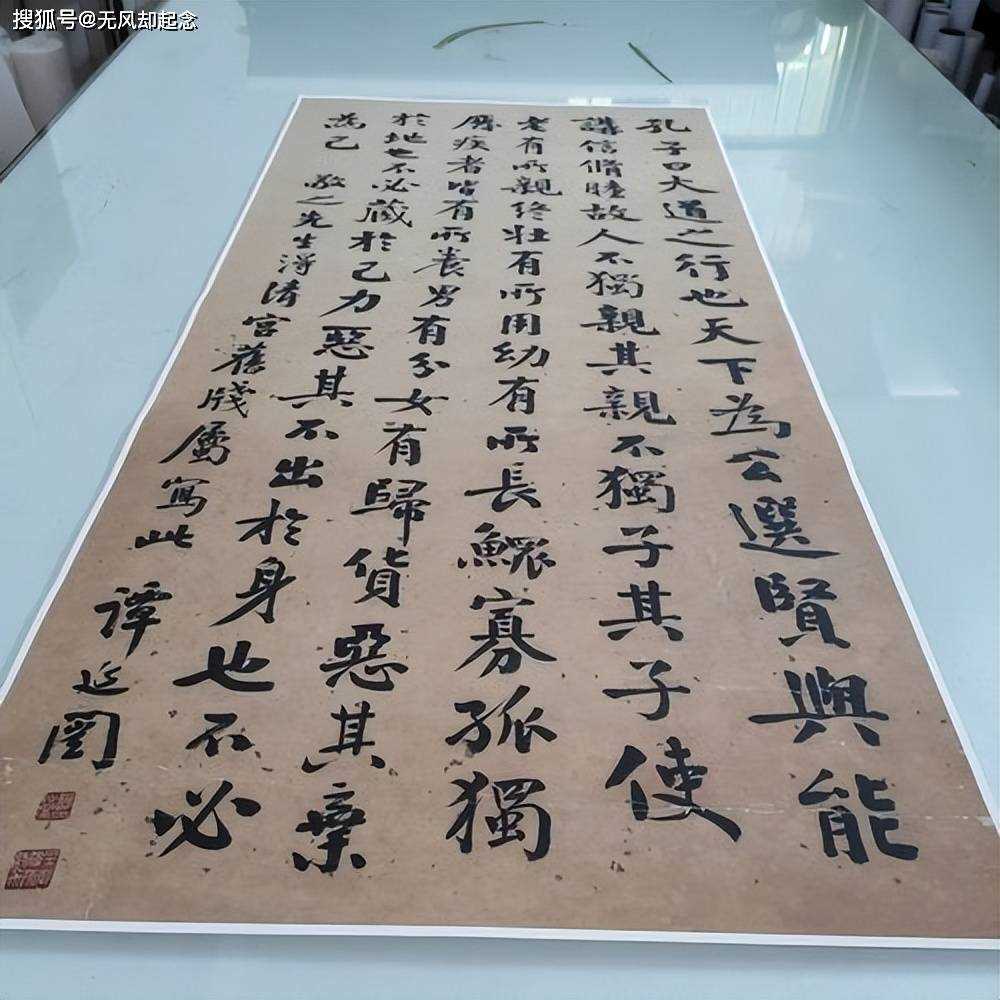 搜狐号@无风却起念
孔子曰大道之行也天下為公選賢與能
講信脩睦故人不獨親其親不獨子其子使
老有所親終壯有所用幼有所長鰥寡孤獨
廢疾者皆有所養男有分女有歸貨惡其棄
於地也不必藏於己力惡其不出於身也不必
為己 敬之先生得清宮舊牋屬寫此 譚延闓